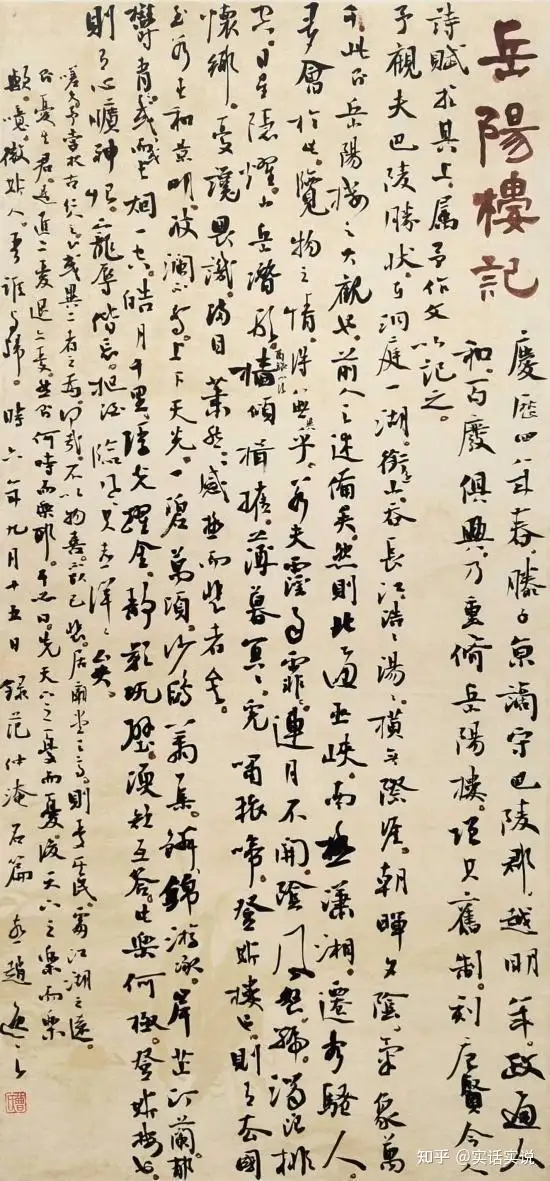 岳陽樓記
慶曆四年春。滕子京謫守巴陵郡。越明年。政通人
和。百廢俱興。乃重脩岳陽樓。增其舊制。刻唐賢今人
詩賦於其上。属予作文以記之。
予觀夫巴陵勝狀。在洞庭一湖。銜遠山。吞長江。浩浩湯湯。橫無際涯。朝暉夕陰。氣象萬
千。此則岳陽樓之大觀也。前人之述備矣。然則北通巫峽。南極瀟湘。遷客騷人。
多會於此。覽物之情。得無異乎。若夫霪雨霏霏。連月不開。陰風怒號。濁浪排
空。日星隱耀。山岳潛形。商旅不行。檣傾楫摧。薄暮冥冥。虎嘯猿啼。登斯樓也。則有去國
懷鄉。憂讒畏譏。滿目蕭然。感極而悲者矣。
至若春和景明。波瀾不驚。上下天光。一碧萬頃。沙鷗翔集。鱗錦游泳。岸芷汀蘭。郁
鬱青青。或而長烟一空。皓月千里。浮光躍金。靜影沉璧。漁歌互答。此樂何極。登斯樓也。
則有心曠神怡。寵辱偕忘。把酒臨風。其喜洋洋者矣。
嗟夫。予嘗求古仁人之心。或異二者之為。何哉。不以物喜。不以己悲。居廟堂之高。則憂其民。處江湖之遠。
則憂其君。是進亦憂。退亦憂。然則何時而樂耶。其必曰。先天下之憂而憂。後天下之樂而樂
歟。噫。微斯人。吾誰與歸。時六年九月十五日 錄范仲淹名篇
知乎 @实话实说